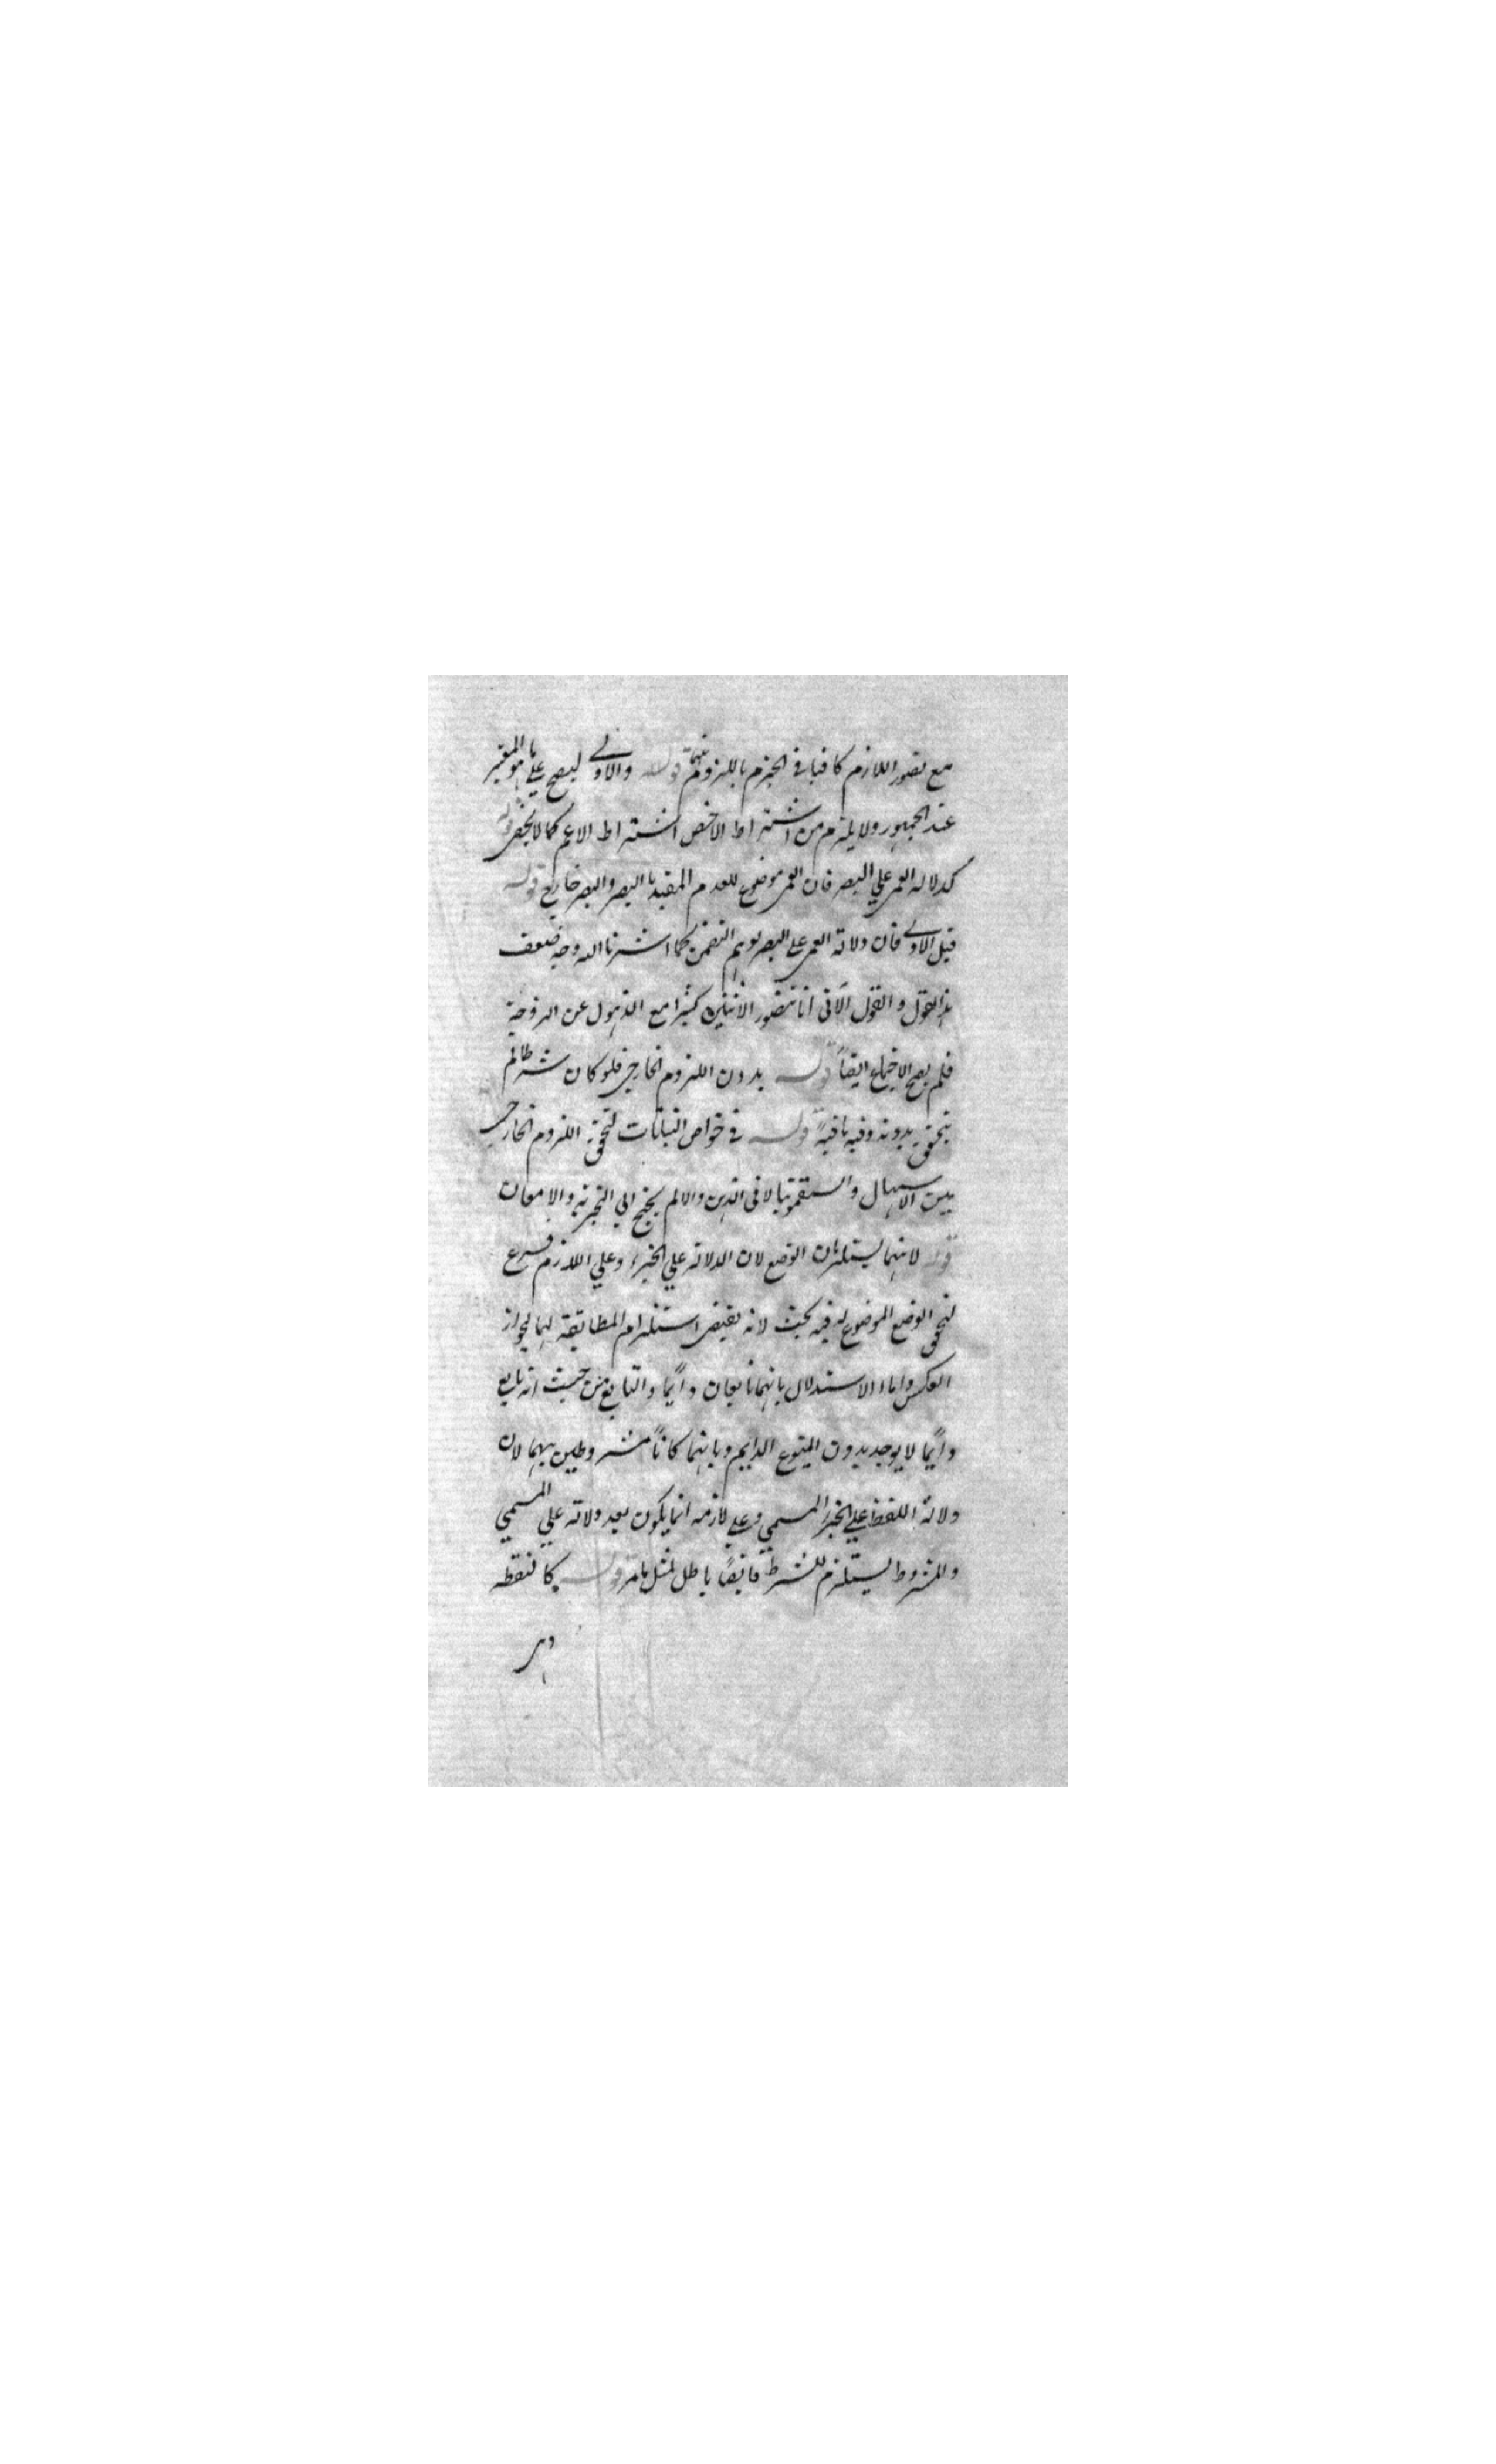 مع تصور اللازم كافيا في الجزم باللزوم بينهما قوله والاولى ليصح على ما هو المعتبر
عند الجمهور ولا يلزم من اشتراط الاخص اشتراط الاعم كما لا يخفى قوله
كدلالة العمى على البصر فان العمى موضوع للعدم المقيد بالبصر والبصر خارج قوله
قيل الاولى فان دلالة العمى على البصر توهم التضمن كما اشرنا اليه وجه ضعف
هذا القول و القول الآتي انا نتصور الاثنين كثيرا مع الذهول عن الزوجية
فلم يصح الاجماع ايضا قوله بدون اللزوم الخارجي فلو كان شرطا لم
يتحقق بدونه وفيه ما فيه قوله في خواص النباتات لتحقق اللزوم الخارجي
بين الاسهال والسقمونيا لا في الذهن والا لم يحتج الى التجربة والامعان
قوله لانهما يستلزمان الوضع لان الدلالة على الجزء وعلى اللازم فرع
لتحقق الوضع الموضوع له فيه بحث لانه نقيض استلزام المطابقة لهما لجواز
العكس واما الاستدلال بانهما تابعان دائما والتابع من حيث انه تابع
دائما لا يوجد بدون المتبوع الدايم وبانهما كانا مشروطين بهما لان
دلالة اللفظ على الجزء المسمى وعلى لازمه انما يكون بعد دلالته على المسمى
والمشروط يستلزم للشرط فايضا باطل لمثل ما مر قوله كالنقطة